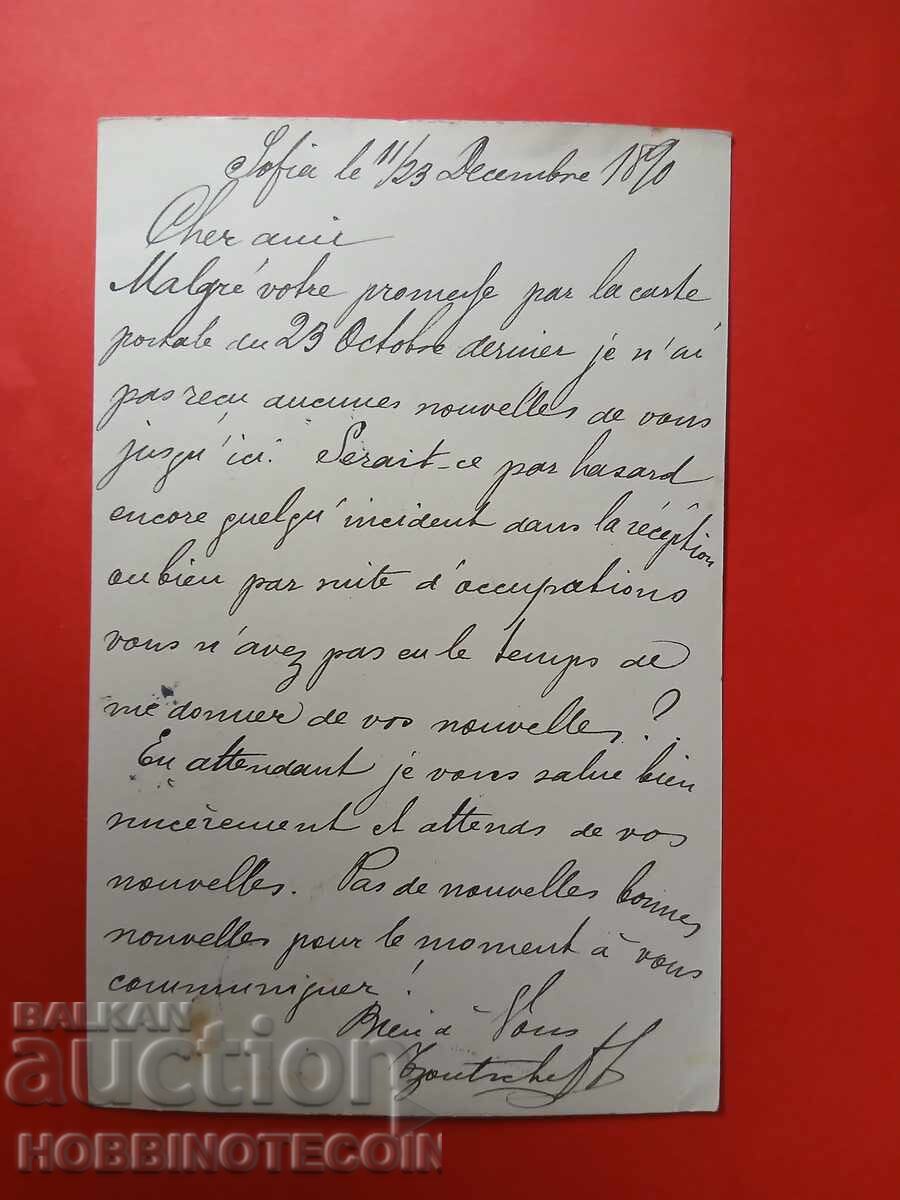 Sofia le 11/23 Decembre 1890
Cher ami
Malgré votre promesse par la carte
postale du 23 Octobre dernier je n'ai
pas reçu aucunes nouvelles de vous
jusqu'ici. Serait-ce par hasard
encore quelqu'incident dans la réception
ou bien par suite d'occupations
vous n'avez pas eu le temps de
me donner de vos nouvelles?
En attendant je vous salue bien
sincèrement et attends de vos
nouvelles. Pas de nouvelles bonnes
nouvelles pour le moment à vous
communiquer!
Bien à Vous
BALKAN
auction
HOBBINOTECOIN